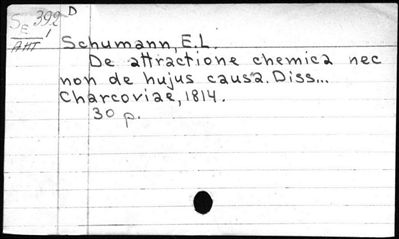 SE 392 D
АНТ 1
Schumann, E.L.
De attractione chemica nec
non de hujus causa. Diss...
Charcoviae, 1814.
30 p.